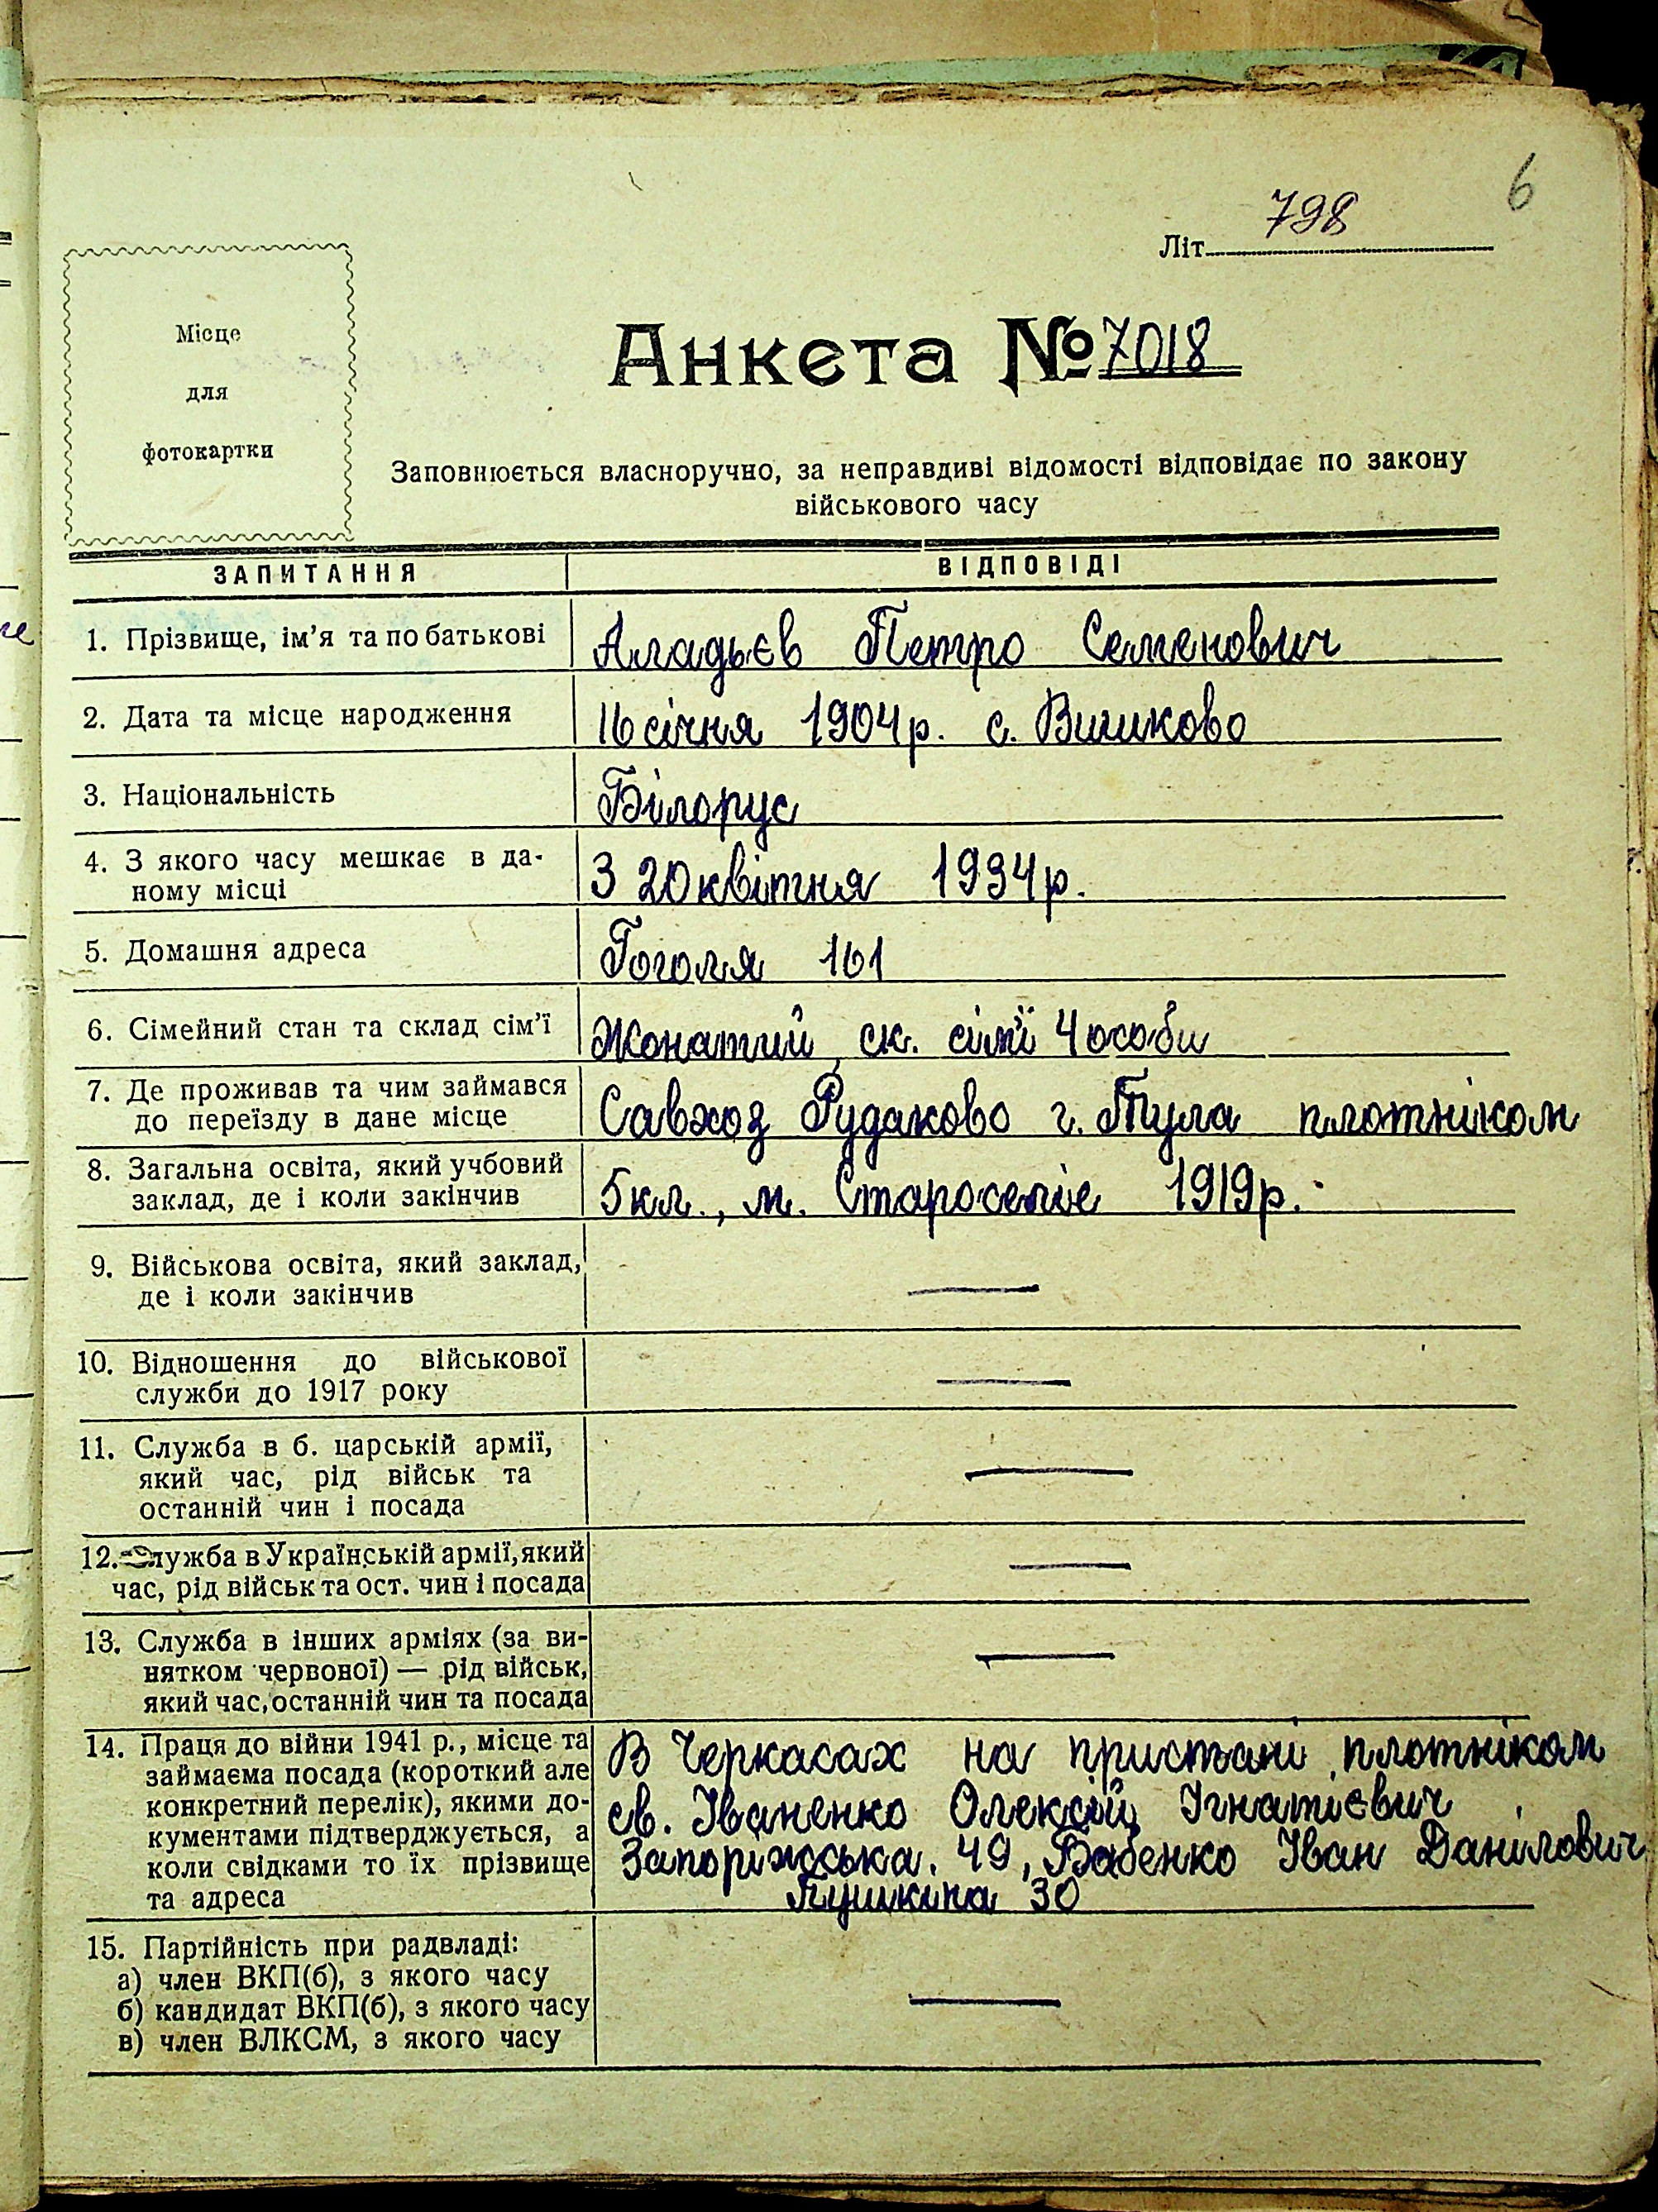 6
Літ. 798
Місце
для
фотокартки
Анкета № 7018
Заповнюється власноручно, за неправдиві відомості відповідає по закону
військового часу
ЗАПИТАННЯ ВІДПОВІДІ
1. Прізвище, ім'я та по батькові Аладьєв Петро Семенович
2. Дата та місце народження 16 січня 1904 р. с. Вишково
3. Національність Білорус
4. З якого часу мешкає в да-
ному місці З 20 квітня 1934 р.
5. Домашня адреса Гоголя 161
6. Сімейний стан та склад сім'ї Жонатий, ск. сім'ї 4 особи
7. Де проживав та чим займався
до переїзду в дане місце Савхоз Рудаково г. Тула плотніком
8. Загальна освіта, який учбовий
заклад, де і коли закінчив 5 кл., м. Староселіе 1919 р.
9. Військова освіта, який заклад,
де і коли закінчив —
10. Відношення до військової
служби до 1917 року —
11. Служба в б. царській армії,
який час, рід військ та
останній чин і посада —
12. Служба в Українській армії, який
час, рід військ та ост. чин і посада —
13. Служба в інших арміях (за ви-
нятком червоної) — рід військ,
який час, останній чин та посада —
14. Праця до війни 1941 р., місце та
займаєма посада (короткий але
конкретний перелік), якими до-
кументами підтверджується, а
коли свідками то їх прізвище
та адреса
В Черкасах на пристані плотніком
св. Іваненко Олексій Ігнатієвич
Запоріжська. 49, Бабенко Іван Данілович
Пушкіна 30
15. Партійність при радвладі:
а) член ВКП(б), з якого часу
б) кандидат ВКП(б), з якого часу —
в) член ВЛКСМ, з якого часу